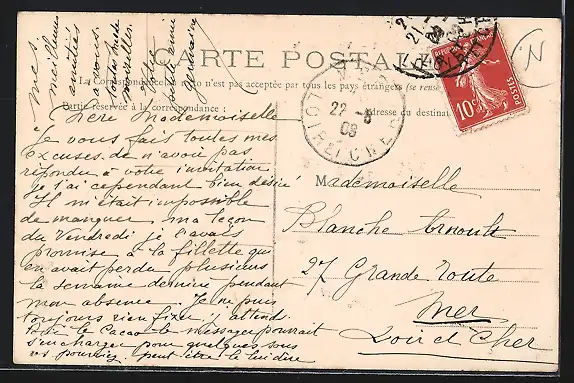 CARTE POSTALE
La Correspondance au recto n'est pas acceptée par tous les pays étrangers (se rense
Partie réservée à la correspondance
Adresse du destinat
Chère Mademoiselle
Je vous fais toutes mes
excuses de n'avoir pas
répondu à votre invitation
je l'ai cependant bien désiré
Il m'était impossible
de manquer ma leçon
du Vendredi je l'avais
promise à la fillette qui
en avait perdu plusieurs
la semaine dernière pendant
mon absence. Je ne puis
toujours rien fixer; attend.
Pour le Cacao le messager pourrait
s'en charger pour quelques sous
vs pourriez peut être le lui dire
mes
meilleures
amitiés
à vous
toutes mesde
moiselles.
Votre
petite amie
Germaine
Mademoiselle
Blanche Arnoult
27 Grande Route
Mer
Loir et Cher
MER
22 -8
09
LOIR-ET-CHER
10c
POSTES
N